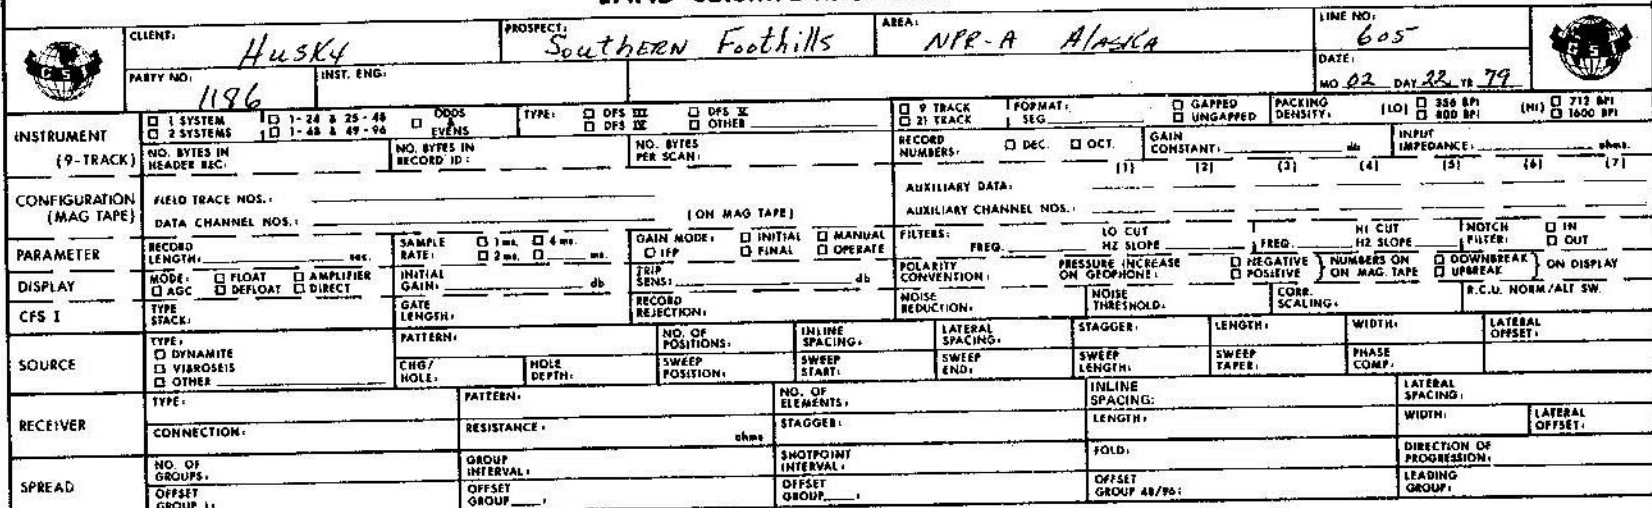 CLIENT: Husky PROSPECT: Southern Foothills AREA: NPR-A Alaska LINE NO: 605
GSI GSI
PARTY NO: 1186 INST. ENG: DATE: MO 02 DAY 22 YR 79
INSTRUMENT (9-TRACK)
1 SYSTEM 1-24 & 25-48 ODDS & EVENS TYPE: DFS III DFS V 9 TRACK FORMAT: GAPPED PACKING DENSITY: (LO) 356 BPI (HI) 712 BPI
2 SYSTEMS 1-48 & 49-96 DFS IV OTHER 21 TRACK SEG UNGAPPED 800 BPI 1600 BPI
NO. BYTES IN HEADER REC: NO. BYTES IN RECORD ID: NO. BYTES PER SCAN: RECORD NUMBERS: DEC. OCT. GAIN CONSTANT: db INPUT IMPEDANCE: ohms.
(1) (2) (3) (4) (5) (6) (7)
CONFIGURATION (MAG TAPE)
FIELD TRACE NOS.: AUXILIARY DATA:
DATA CHANNEL NOS.: (ON MAG TAPE) AUXILIARY CHANNEL NOS.:
PARAMETER RECORD LENGTH: sec. SAMPLE RATE: 1 ms. 4 ms. 2 ms. ms. GAIN MODE: INITIAL MANUAL IFP FINAL OPERATE FILTERS: FREQ. LO CUT HZ SLOPE FREQ. HI CUT HZ SLOPE NOTCH FILTER: IN OUT
DISPLAY MODE: FLOAT AMPLIFIER AGC DEFLOAT DIRECT INITIAL GAIN: db TRIP SENS: db POLARITY CONVENTION: PRESSURE INCREASE ON GEOPHONE: NEGATIVE POSITIVE NUMBERS ON ON MAG. TAPE DOWNBREAK UPBREAK ON DISPLAY
CFS I TYPE STACK: GATE LENGTH: RECORD REJECTION: NOISE REDUCTION: NOISE THRESHOLD: CORR. SCALING: R.C.U. NORM/ALT SW.
SOURCE
TYPE: DYNAMITE VIBROSEIS OTHER
PATTERN: NO. OF POSITIONS: INLINE SPACING: LATERAL SPACING: STAGGER: LENGTH: WIDTH: LATERAL OFFSET:
CHG/HOLE: HOLE DEPTH: SWEEP POSITION: SWEEP START: SWEEP END: SWEEP LENGTH: SWEEP TAPER: PHASE COMP:
RECEIVER
TYPE: PATTERN: NO. OF ELEMENTS: INLINE SPACING: LATERAL SPACING:
CONNECTION: RESISTANCE: ohms STAGGER: LENGTH: WIDTH: LATERAL OFFSET:
SPREAD
NO. OF GROUPS: GROUP INTERVAL: SHOTPOINT INTERVAL: FOLD: DIRECTION OF PROGRESSION:
OFFSET GROUP 1: OFFSET GROUP : OFFSET GROUP : OFFSET GROUP 48/96: LEADING GROUP: